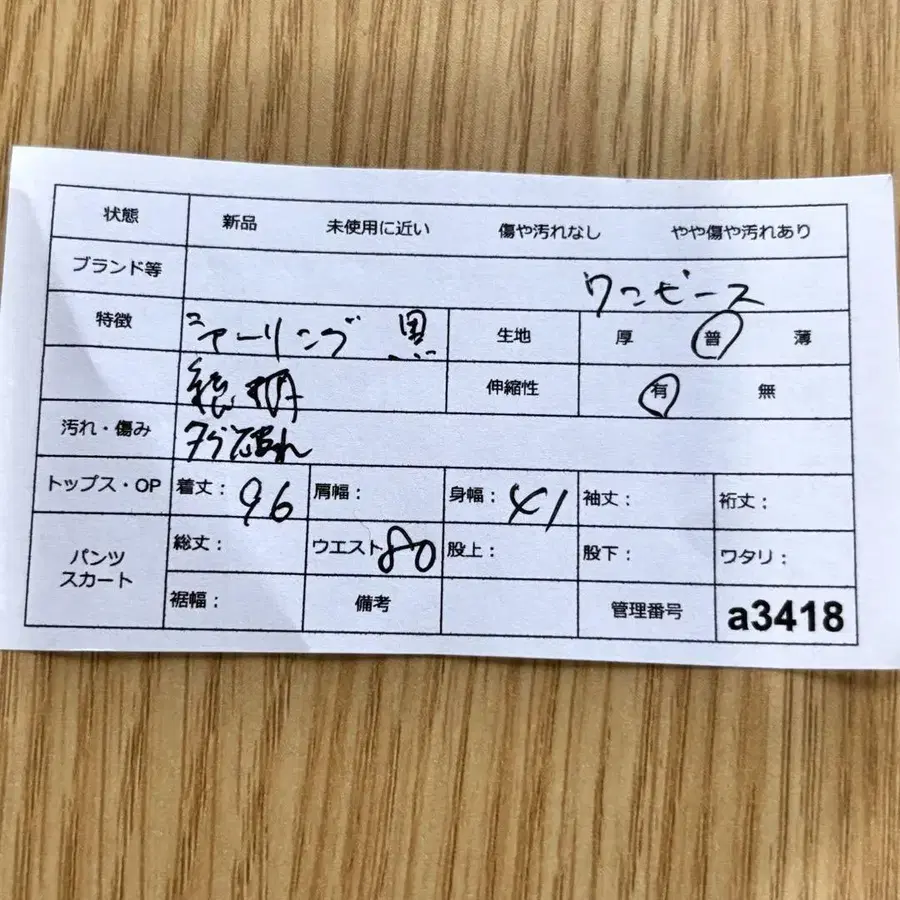 状態 新品 未使用に近い 傷や汚れなし やや傷や汚れあり
ブランド等 ワンピース
特徴 黒 生地 厚 普 薄
総柄 伸縮性 有 無
汚れ・傷み タグ破れ
トップス・OP 着丈： 96 肩幅： 身幅： 41 袖丈： 裄丈：
パンツ スカート 総丈： ウエスト 80 股上： 股下： ワタリ：
裾幅： 備考 管理番号 a3418